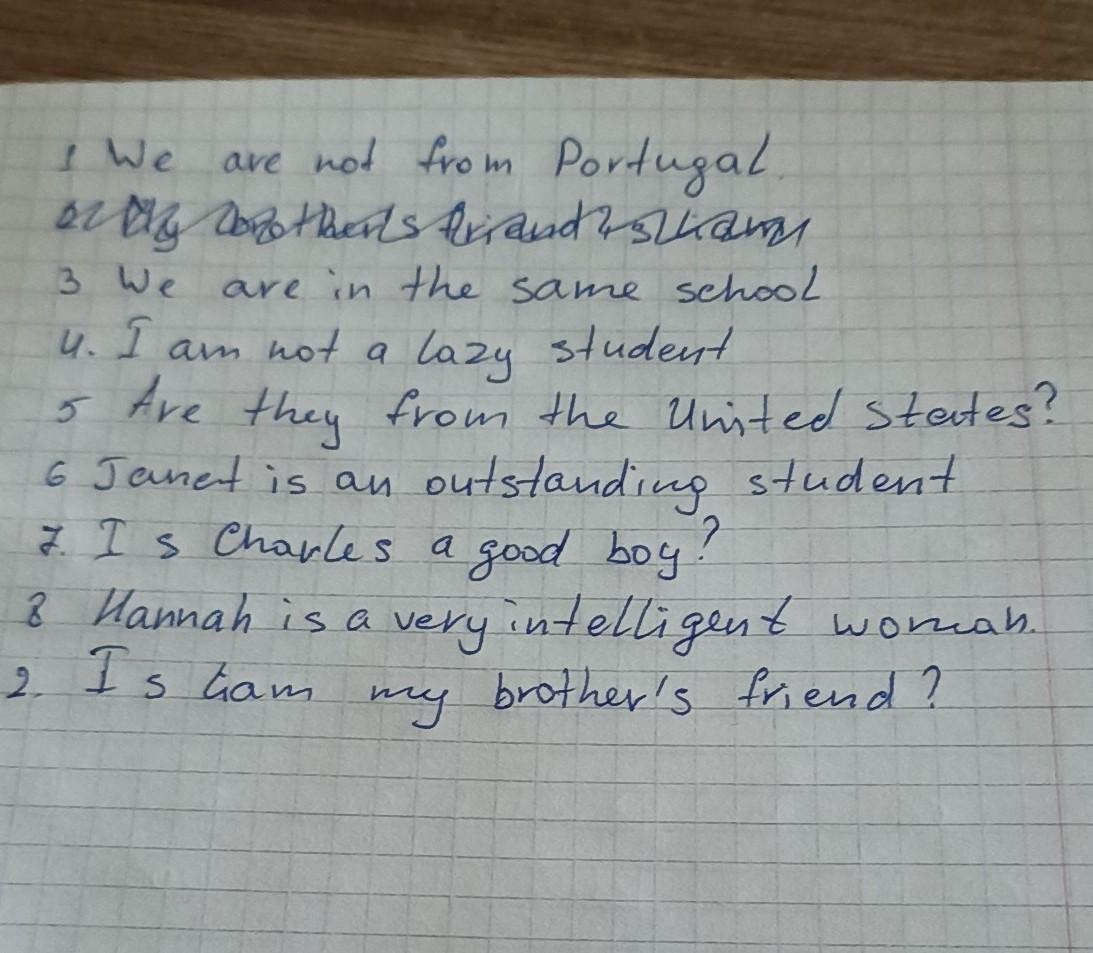 1 We are not from Portugal.
3 We are in the same school
4. I am not a lazy student
5 Are they from the United States?
6 Janet is an outstanding student
7. Is Charles a good boy?
8 Hannah is a very intelligent woman.
2. Is my brother's friend?